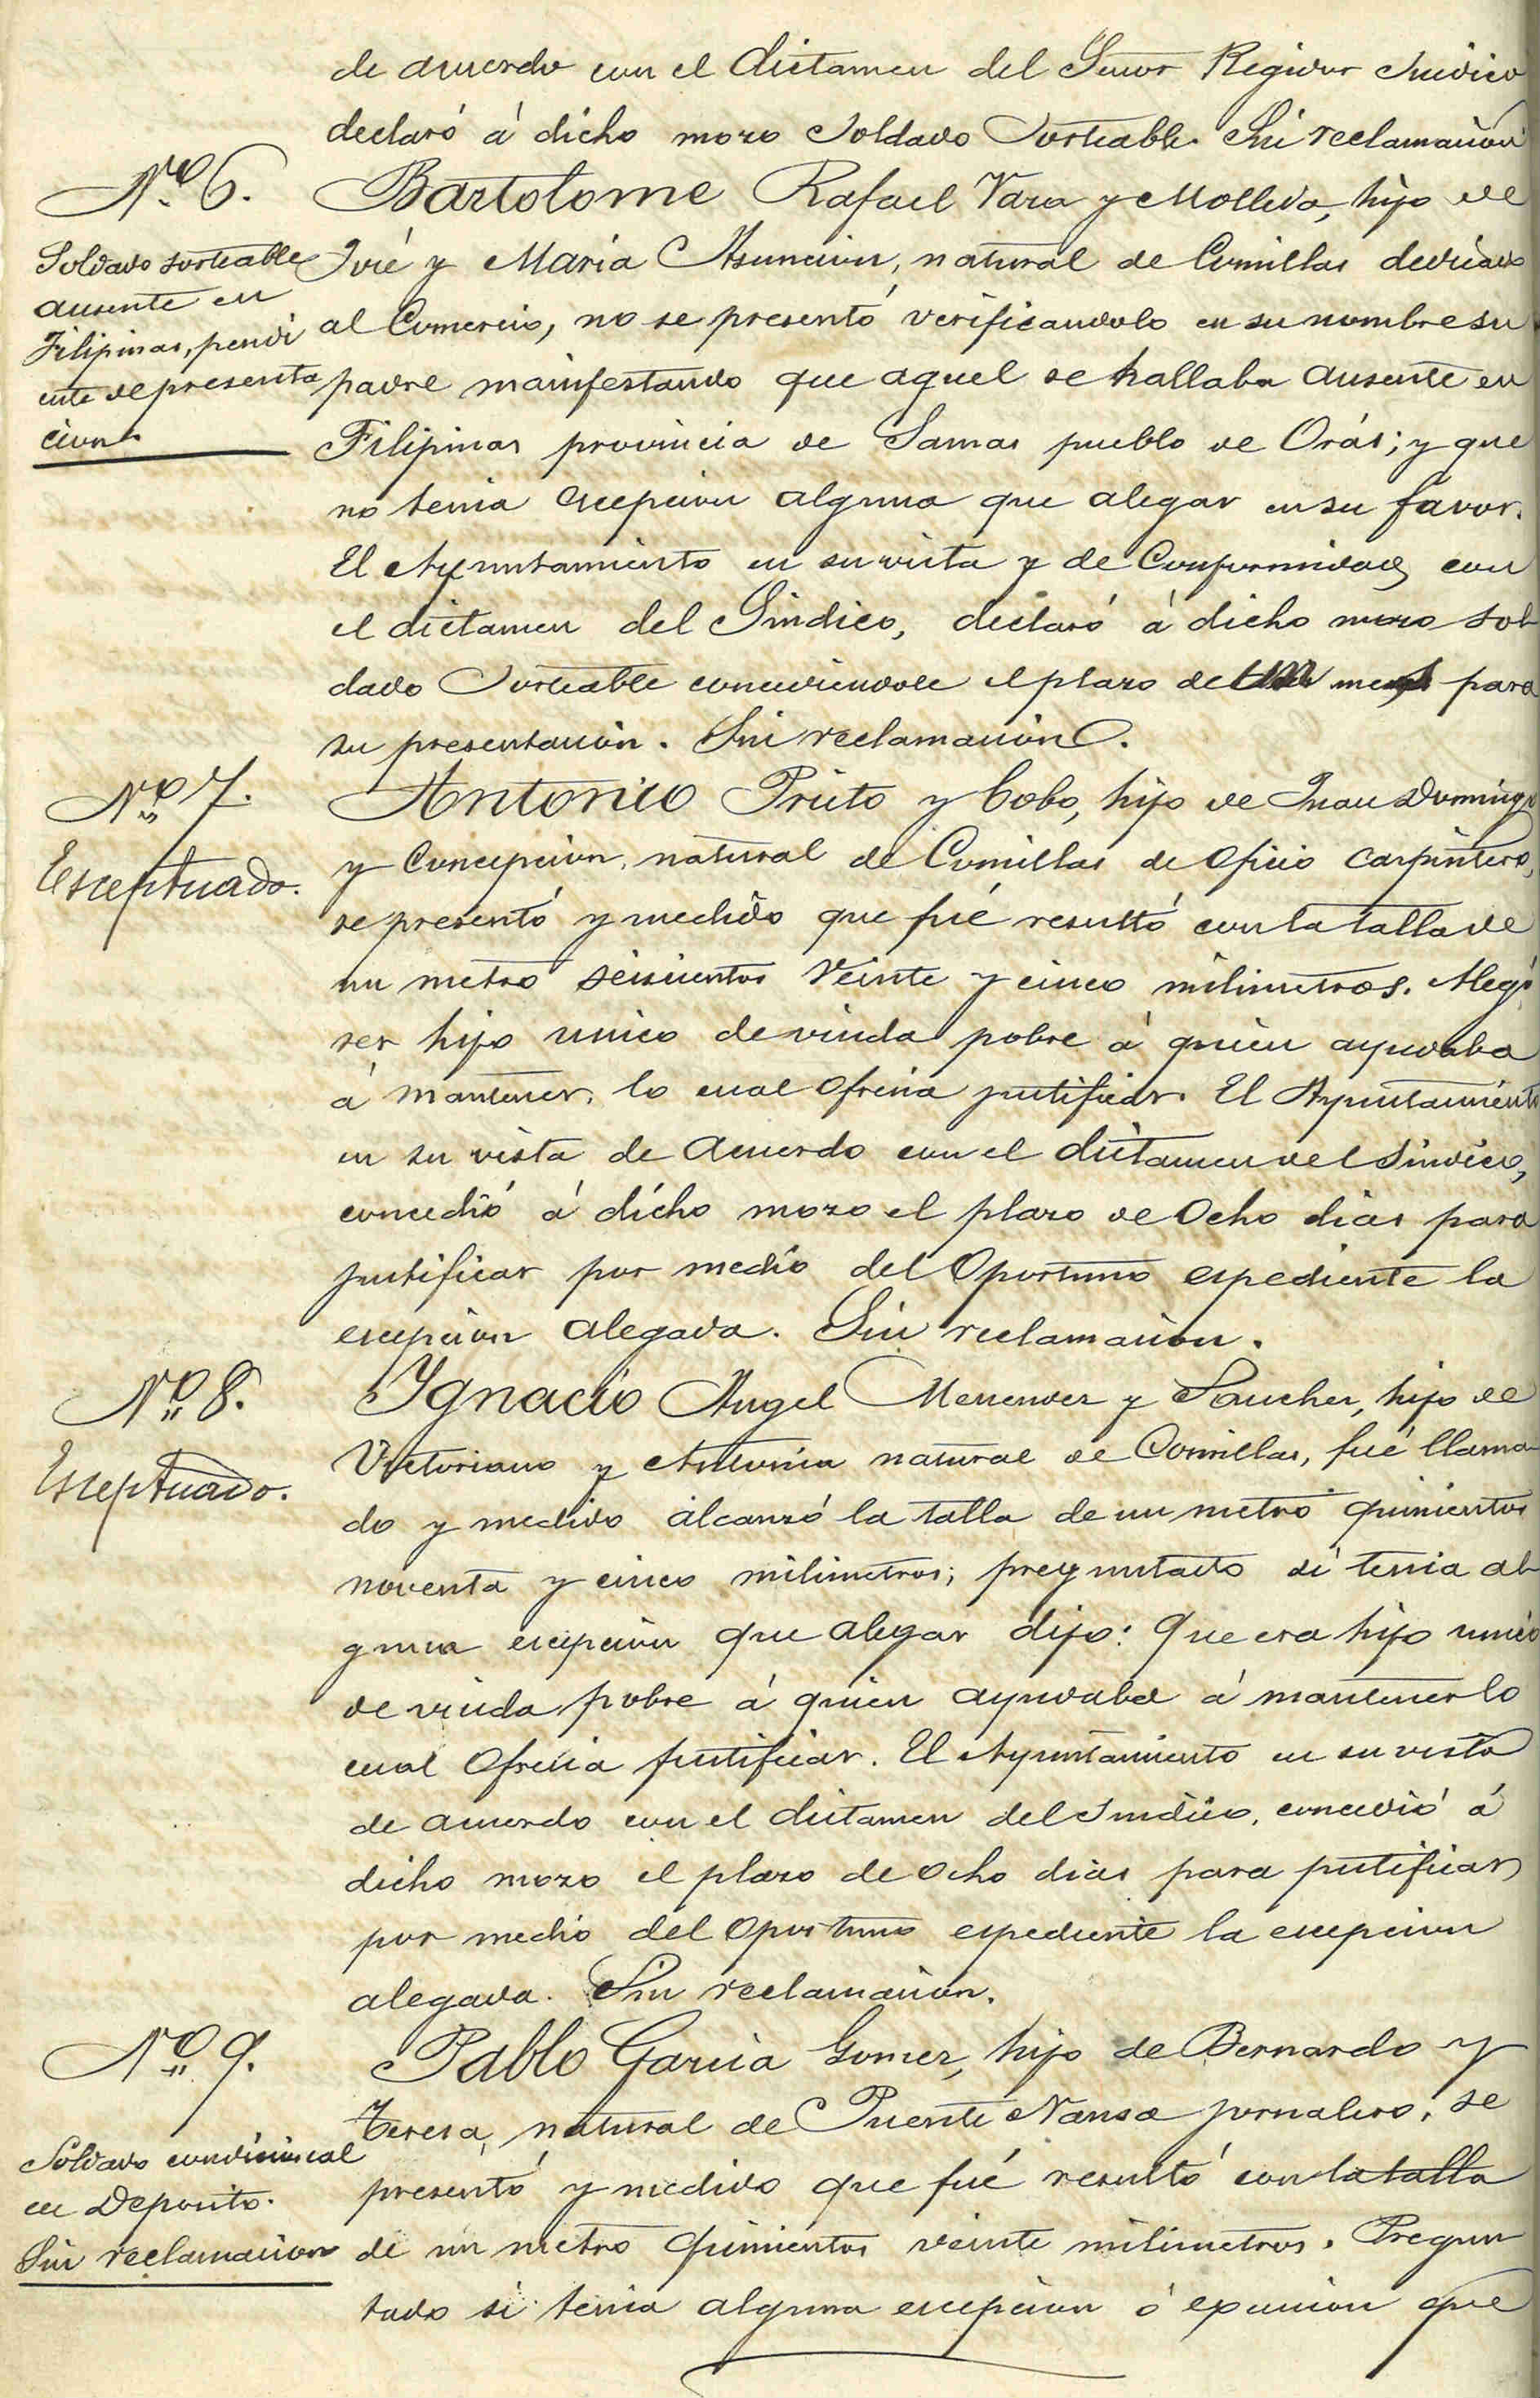 de acuerdo con el dictamen del Señor Regidor Sindico
declaró á dicho mozo Soldado Sorteable. Sin reclamacion
Nº 6.
Bartolome Rafael Vara y Molleda, hijo de
Soldado sorteable
ausente en
Filipinas, pendi
ente de presenta
cion.
José y Maria Asuncion, natural de Comillas dedicado
al Comercio, no se presentó verificandolo en su nombre su
padre manifestando que aquel se hallaba ausente en
Filipinas provincia de Samas pueblo de Orás; y que
no tenia escepcion alguna que alegar en su favor.
El Ayuntamiento en su vista y de Conformidad con
el dictamen del Sindico, declaró á dicho mozo Sol-
dado Sorteable concediendole el plazo de un mes para
su presentacion. Sin reclamacion.
Nº 7.
Esceptuado.
Antonio Prieto y Cobo, hijo de Juan Domingo
y Concepcion, natural de Comillas de oficio carpintero,
se presentó y medido que fué resultó con la talla de
un metro seiscientos veinte y cinco milimetros. Alegó
ser hijo unico de viuda pobre á quien ayudaba
á mantener, lo cual ofrecia justificar. El Ayuntamiento
en su vista de acuerdo con el dictamen del Sindico,
concedió á dicho mozo el plazo de Ocho dias para
justificar por medio del Oportuno espediente la
escepcion alegada. Sin reclamacion.
Nº 8.
Esceptuado.
Ygnacio Angel Menendez y Sanchez, hijo de
Victoriano y Antonia natural de Comillas, fué llama-
do y medido alcanzó la talla de un metro quinientos
noventa y cinco milimetros; preguntado si tenia al-
guna escepcion que alegar dijo: Que era hijo unico
de viuda pobre á quien ayudaba á mantener lo
cual Ofrecia justificar. El Ayuntamiento en su vista
de acuerdo con el dictamen del Sindico, concedió á
dicho mozo el plazo de ocho dias para justificar
por medio del Oportuno espediente la escepcion
alegada. Sin reclamacion.
Nº 9.
Soldado condicional
en Deposito.
Sin reclamacion
Pablo Garcia Gomez, hijo de Bernardo y
Teresa, natural de Puente Nansa jornalero, se
presentó y medido que fué resultó con la talla
de un metro quinientos veinte milimetros. Pregun
tado si tenia alguna escepcion ó exencion que